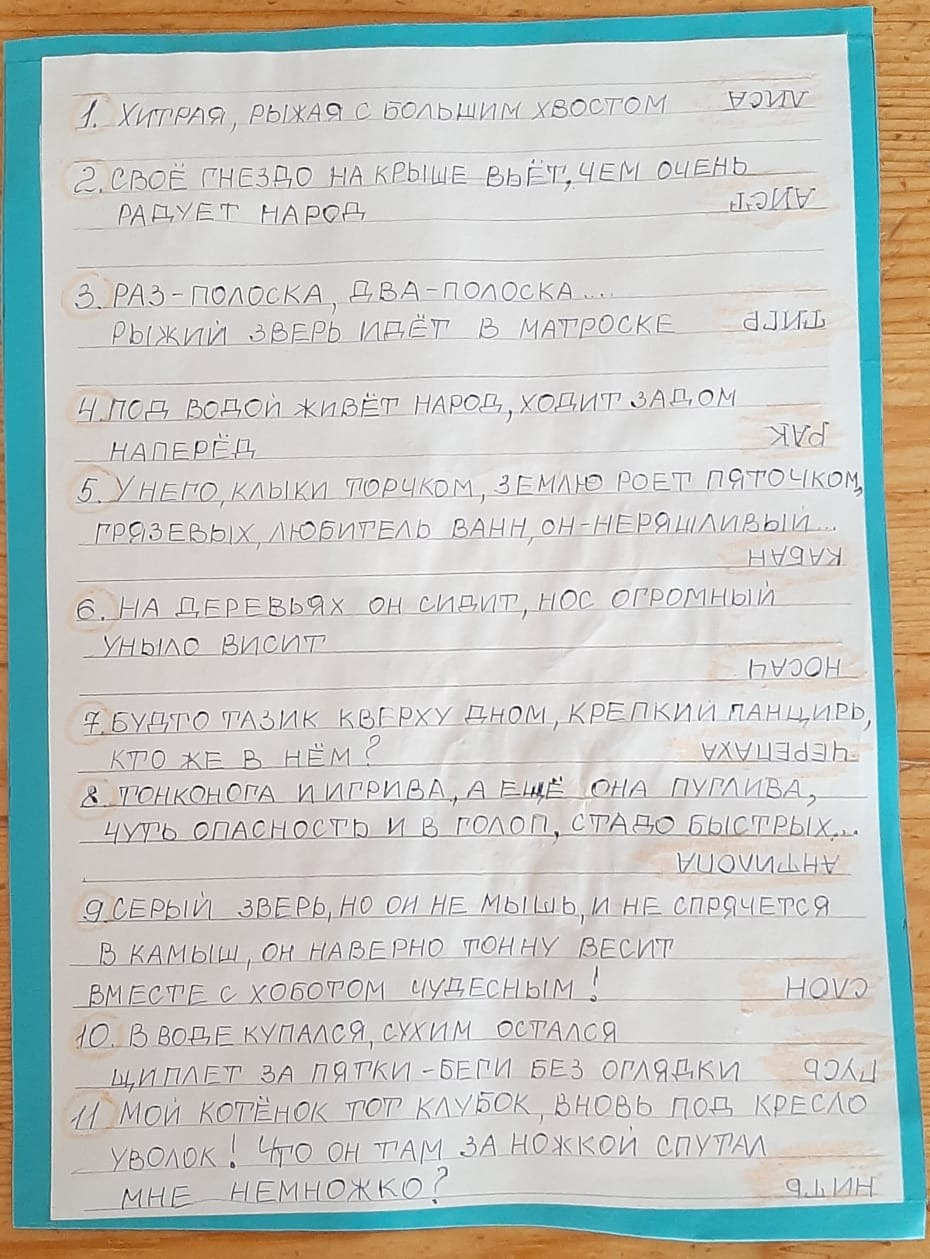 1. ХИТРАЯ, РЫЖАЯ С БОЛЬШИМ ХВОСТОМ ЛИСА
2. СВОЁ ГНЕЗДО НА КРЫШЕ ВЬЁТ, ЧЕМ ОЧЕНЬ
РАДУЕТ НАРОД АИСТ
3. РАЗ-ПОЛОСКА, ДВА-ПОЛОСКА....
РЫЖИЙ ЗВЕРЬ ИДЁТ В МАТРОСКЕ ТИГР
4. ПОД ВОДОЙ ЖИВЁТ НАРОД, ХОДИТ ЗАДОМ
НАПЕРЁД РАК
5. У НЕГО, КЛЫКИ ТОРЧКОМ, ЗЕМЛЮ РОЕТ ПЯТОЧКОМ,
ГРЯЗЕВЫХ, ЛЮБИТЕЛЬ ВАНН, ОН-НЕРЯШЛИВЫЙ...
КАБАН
6. НА ДЕРЕВЬЯХ ОН СИДИТ, НОС ОГРОМНЫЙ
УНЫЛО ВИСИТ
НОСАЧ
7. БУДТО ТАЗИК КВЕРХУ ДНОМ, КРЕПКИЙ ПАНЦИРЬ,
КТО ЖЕ В НЁМ? ЧЕРЕПАХА
8. ТОНКОНОГА И ИГРИВА, А ЕЩЁ ОНА ПУГЛИВА,
ЧУТЬ ОПАСНОСТЬ И В ГОЛОП, СТАДО БЫСТРЫХ...
АНТИЛОПА
9. СЕРЫЙ ЗВЕРЬ, НО ОН НЕ МЫШЬ, И НЕ СПРЯЧЕТСЯ
В КАМЫШ, ОН НАВЕРНО ТОННУ ВЕСИТ
ВМЕСТЕ С ХОБОТОМ ЧУДЕСНЫМ! СЛОН
10. В ВОДЕ КУПАЛСЯ, СУХИМ ОСТАЛСЯ
ЩИПЛЕТ ЗА ПЯТКИ-БЕГИ БЕЗ ОГЛЯДКИ ГУСЬ
11 МОЙ КОТЁНОК ТОТ КЛУБОК, ВНОВЬ ПОД КРЕСЛО
УВОЛОК! ЧТО ОН ТАМ ЗА НОЖКОЙ СПУТАЛ
МНЕ НЕМНОЖКО? НИТЬ